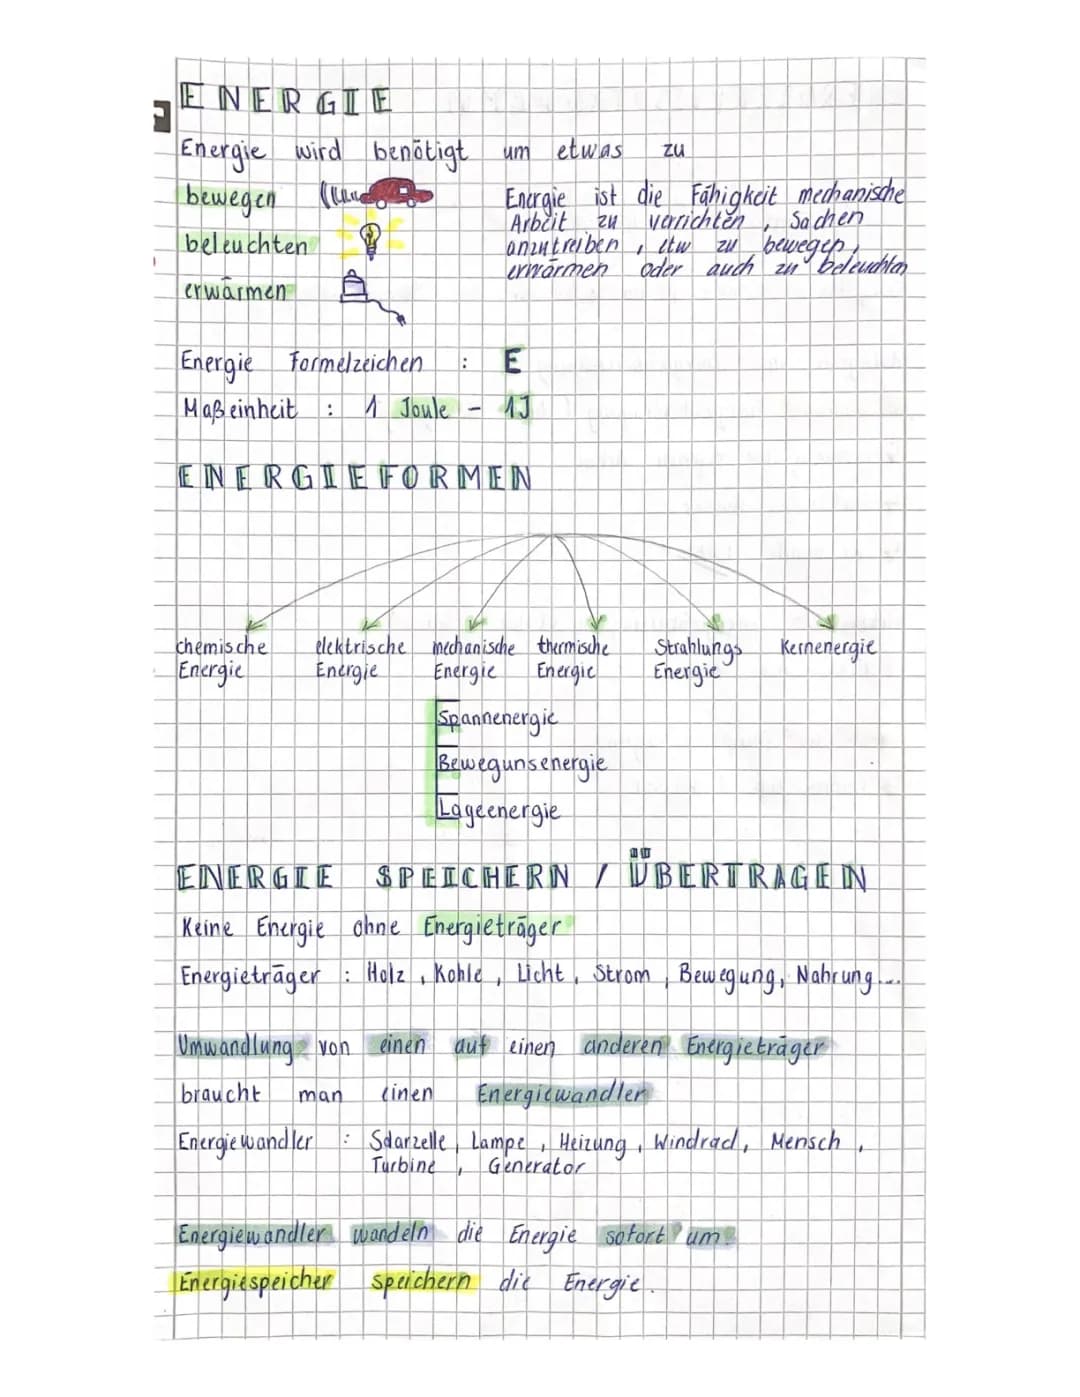 ENERGIE
Energie wird benötigt um etwas zu
bewegen
beleuchten
erwärmen
Energie ist die Fähigkeit mechanische
Arbeit zu verrichten, Sachen
anzutreiben, etw zu bewegen,
erwärmen oder auch zu beleuchten
Energie Formelzeichen : E
Maßeinheit : 1 Joule - 1J
ENERGIEFORMEN
chemische Energie
elektrische Energie
mechanische Energie
thermische Energie
Strahlungs Energie
Kernenergie
Spannenergie
Bewegunsenergie
Lageenergie
ENERGIE SPEICHERN / ÜBERTRAGEN
Keine Energie ohne Energieträger
Energieträger : Holz, Kohle, Licht, Strom, Bewegung, Nahrung...
Umwandlung von einen auf einen anderen Energieträger
braucht man einen Energiewandler
Energiewandler : Solarzelle, Lampe, Heizung, Windrad, Mensch,
Turbine, Generator
Energiewandler wandeln die Energie sofort um.
Energiespeicher speichern die Energie.